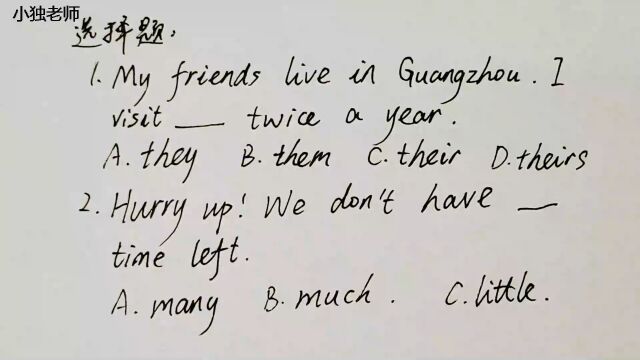 小独老师
选择题:
1. My friends live in Guangzhou. I
visit ___ twice a year.
A. they B. them C. their D. theirs
2. Hurry up! We don't have ___
time left.
A. many B. much. C. little.